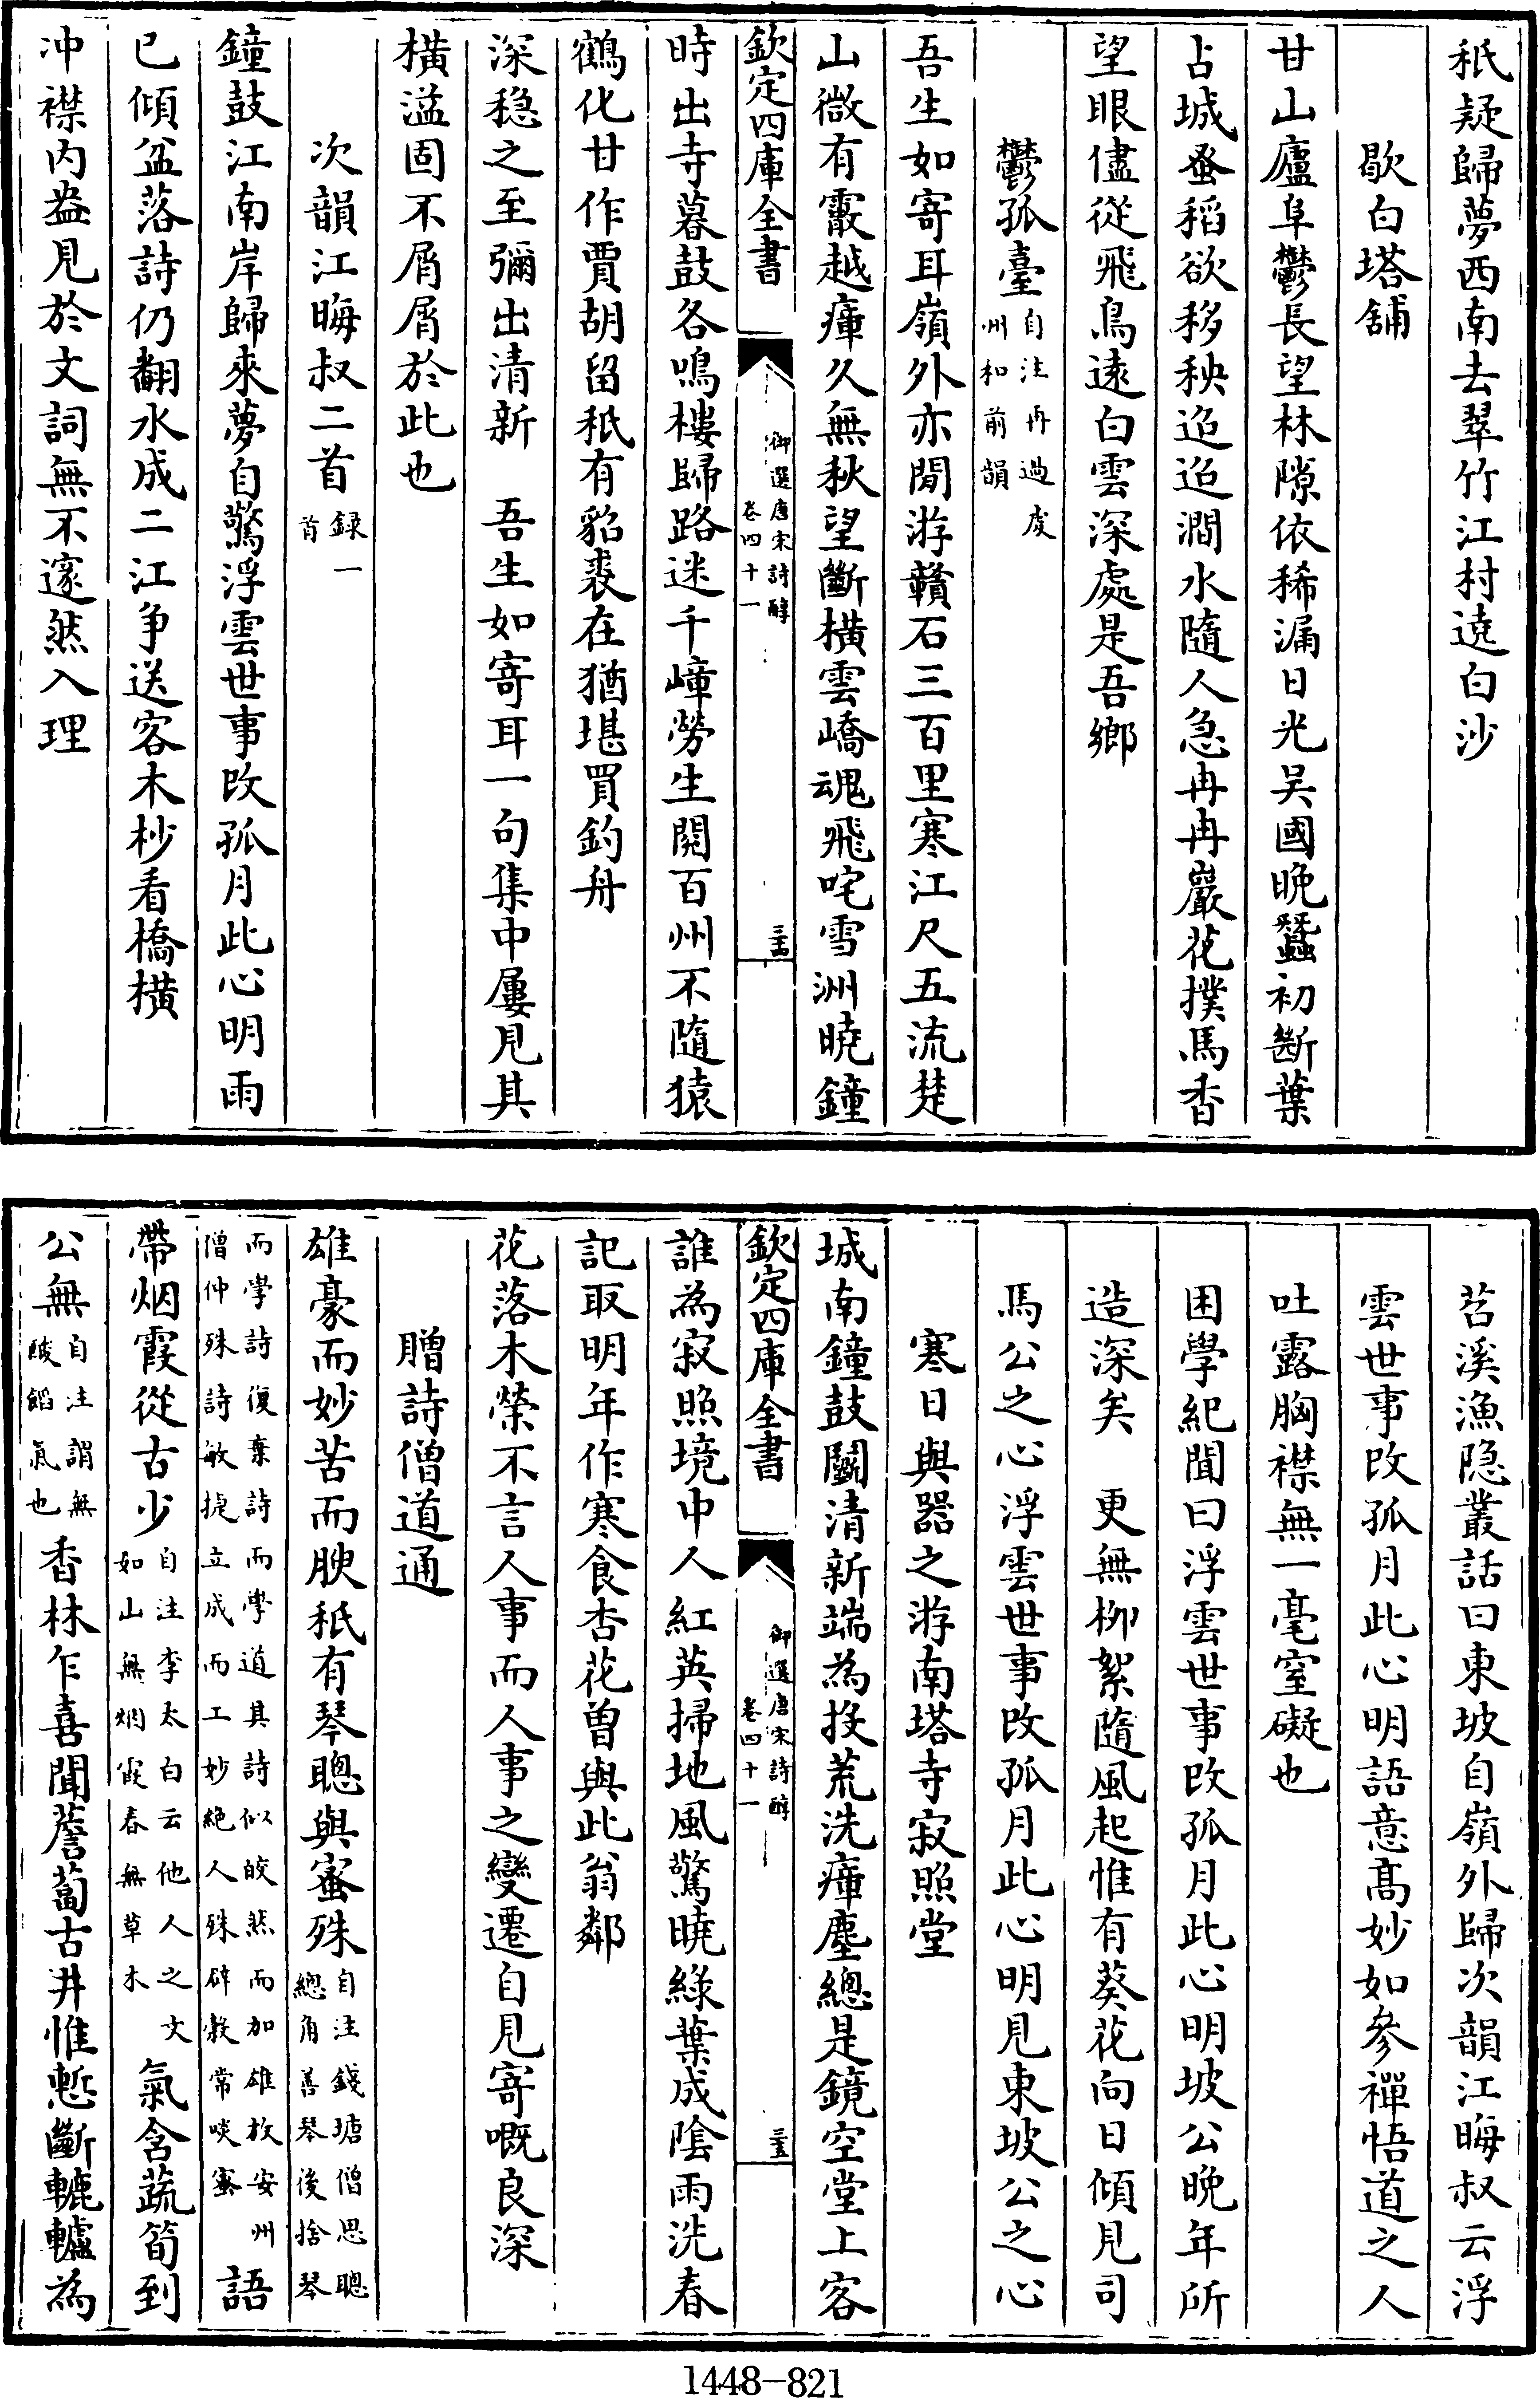 秖疑歸夢西南去翠竹江村遶白沙
歇白塔舖
甘山廬阜鬱長望林隙依稀漏日光吴國晚蠶初斷葉
占城蚤稻欲移秧迢迢澗水隨人急冉冉巖花撲馬香
望眼儘從飛鳥逺白雲深處是吾鄉
鬱孤臺自注再過虔州和前韻
吾生如寄耳嶺外亦閒游贛石三百里寒江尺五流楚
山微有霰越瘴久無秋望斷横雲嶠魂飛咤雪洲曉鐘
欽定四庫全書
御選唐宋詩醇
卷四十一
三十四
時出寺暮鼓各鳴樓歸路迷千嶂勞生閱百州不隨猿
鶴化甘作賈胡留秖有貂裘在猶堪買釣舟
深穏之至彌出清新　吾生如寄耳一句集中屢見其
横溢固不屑屑於此也
次韻江晦叔二首録一首
鐘鼓江南岸歸來夢自驚浮雲世事改孤月此心明雨
已傾盆落詩仍翻水成二江争送客木杪看橋横
冲襟内盎見於文詞無不邃然入理
苕溪漁隠叢話曰東坡自嶺外歸次韻江晦叔云浮
雲世事改孤月此心明語意髙妙如參禪悟道之人
吐露胸襟無一毫窒礙也
困學紀聞曰浮雲世事改孤月此心明坡公晚年所
造深矣　更無柳絮隨風起惟有葵花向日傾見司
馬公之心浮雲世事改孤月此心明見東坡公之心
寒日與器之游南塔寺寂照堂
城南鐘鼓鬭清新端為投荒洗瘴塵總是鏡空堂上客
欽定四庫全書
御選唐宋詩醇
卷四十一
三十五
誰為寂照境中人紅英掃地風驚曉綠葉成隂雨洗春
記取明年作寒食杏花曾與此翁鄰
花落木榮不言人事而人事之變遷自見寄嘅良深
贈詩僧道通
雄豪而妙苦而腴秖有琴聰與蜜殊自注錢塘僧思聰總角善琴後捨琴
而學詩復棄詩而學道其詩似皎然而加雄放安州僧仲殊詩敏捷立成而工妙絶人殊辟榖常啖蜜語
帶烟霞從古少自注李太白云他人之文如山無烟霞春無草木氣含蔬筍到
公無自注謂無酸餡氣也香林乍喜聞薝蔔古井惟愁斷轆轤為
1448—821